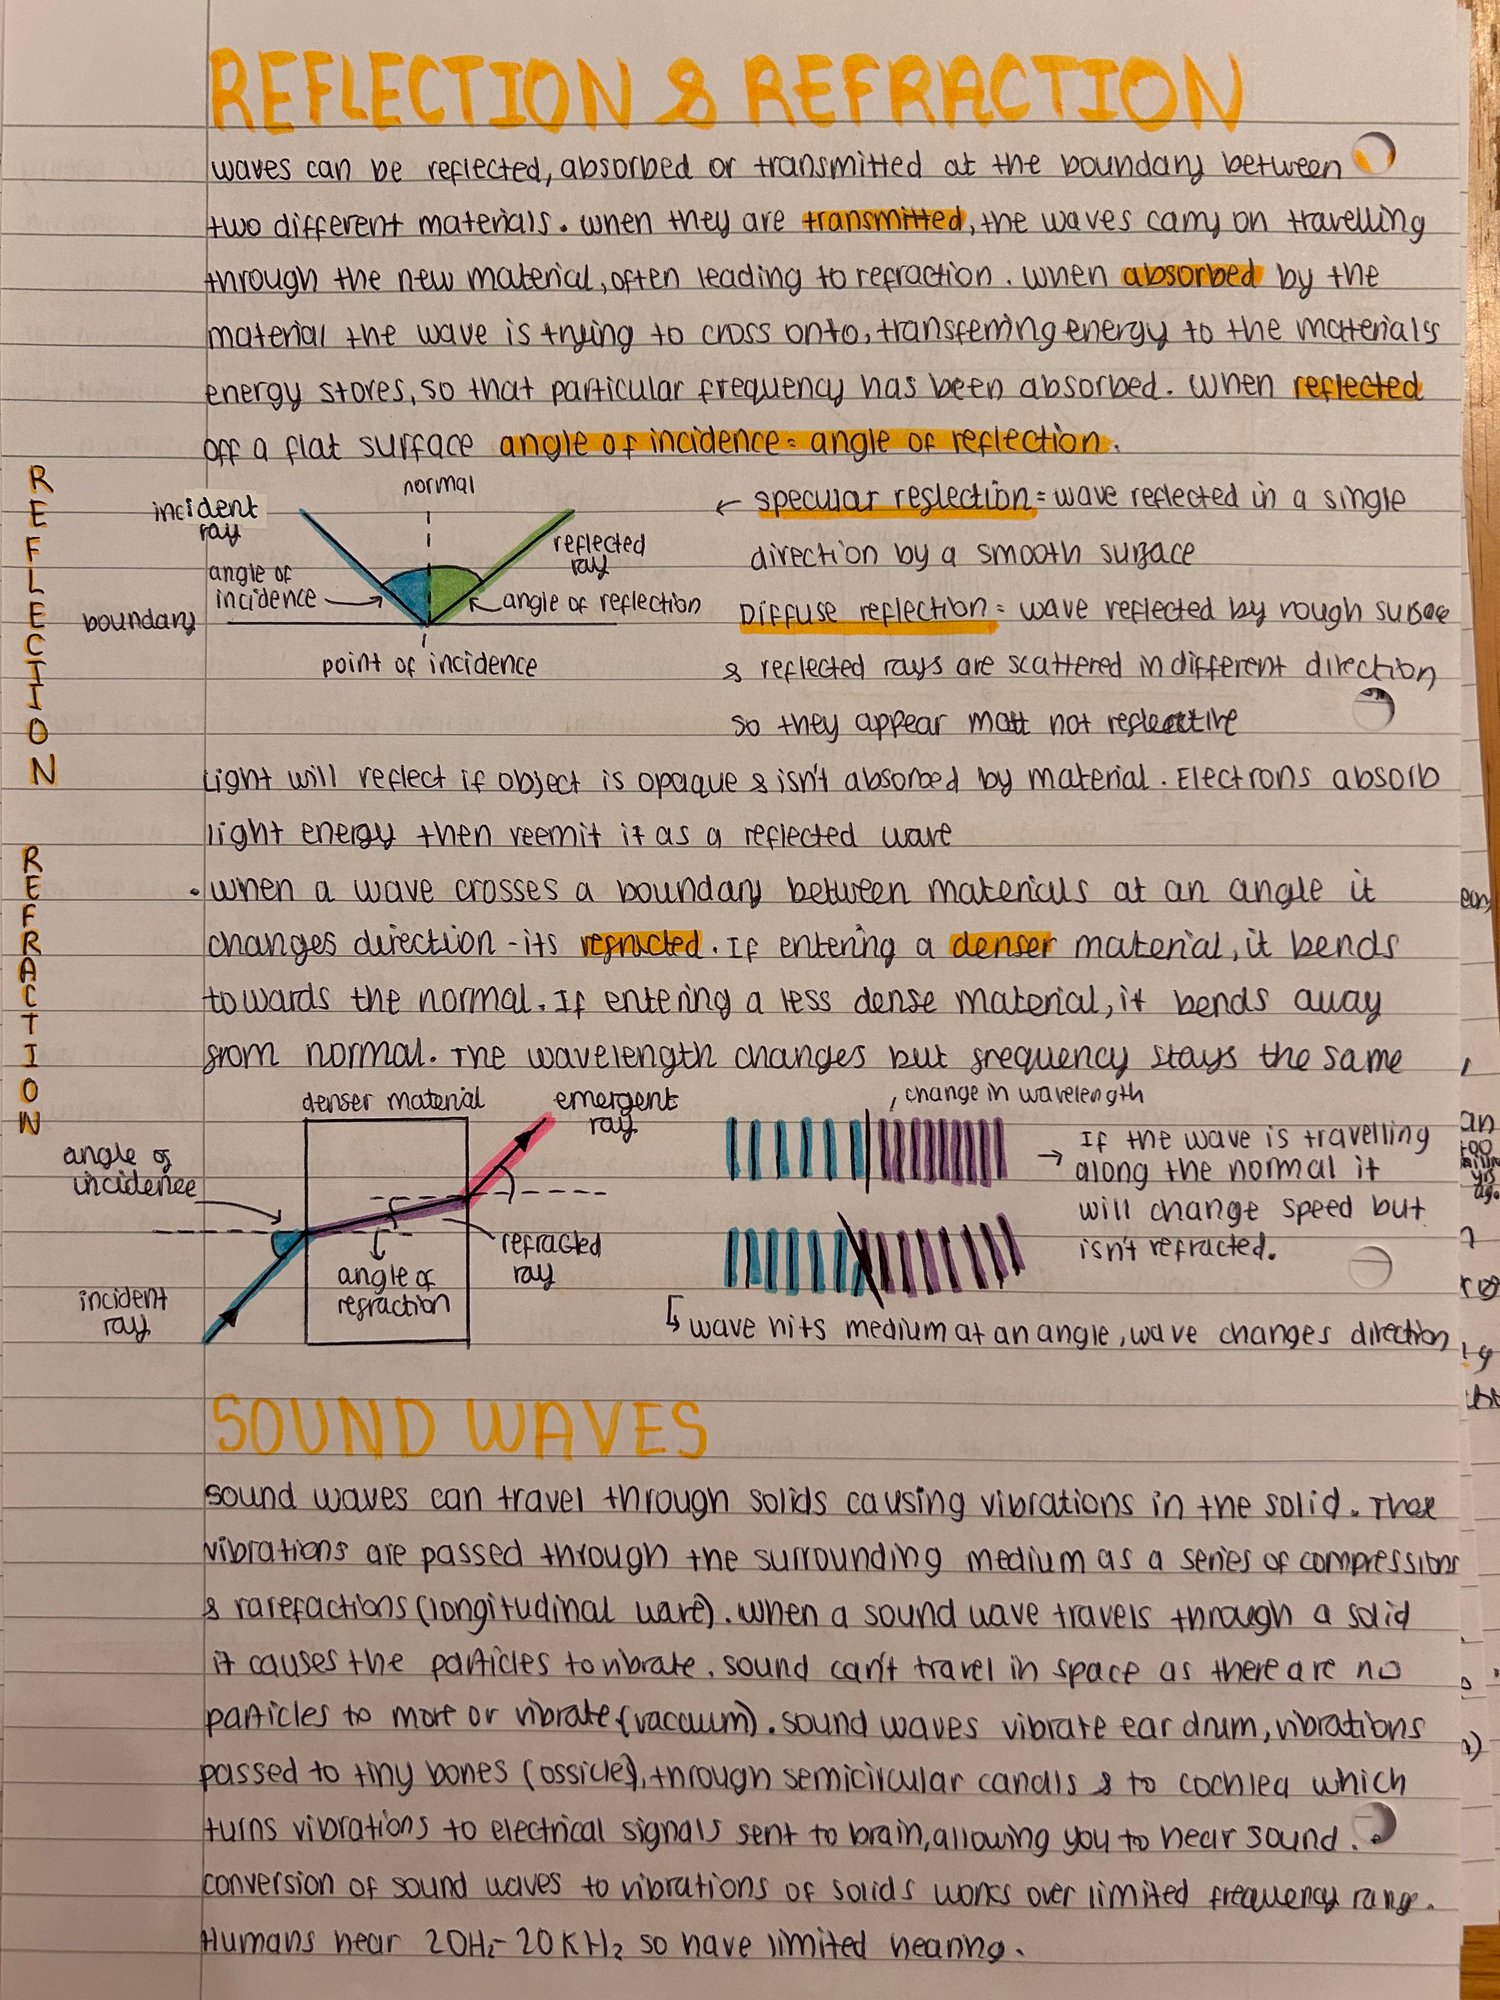 REFLECTION & REFRACTION
waves can be reflected, absorbed or transmitted at the boundary between
two different materials. When they are transmitted, the waves carry on travelling
through the new material, often leading to refraction. When absorbed by the
material the wave is trying to cross onto, transferring energy to the material's
energy stores, so that particular frequency has been absorbed. When reflected
off a flat surface angle of incidence = angle of reflection.
REFLECTION
normal
incident
ray
reflected
ray
angle of
incidence
angle of reflection
boundary
point of incidence
← specular reflection = wave reflected in a single
direction by a smooth surface
Diffuse reflection = wave reflected by rough surface
& reflected rays are scattered in different direction
so they appear matt not reflective
Light will reflect if object is opaque & isn't absorbed by material. Electrons absorb
light energy then reemit it as a reflected wave
REFRACTION
• When a wave crosses a boundary between materials at an angle it
changes direction - its refracted. If entering a denser material, it bends
towards the normal. If entering a less dense material, it bends away
from normal. The wavelength changes but frequency stays the same
denser material
emergent
ray
angle of
incidence
refracted
ray
angle of
refraction
incident
ray
change in wavelength
→ If the wave is travelling
along the normal it
will change speed but
isn't refracted.
wave hits medium at an angle, wave changes direction
SOUND WAVES
Sound waves can travel through solids causing vibrations in the solid. These
vibrations are passed through the surrounding medium as a series of compressions
& rarefactions (longitudinal wave). When a sound wave travels through a solid
it causes the particles to vibrate. Sound can't travel in space as there are no
particles to move or vibrate (vacuum). Sound waves vibrate ear drum, vibrations
passed to tiny bones (ossicles), through semicircular canals & to cochlea which
turns vibrations to electrical signals sent to brain, allowing you to hear sound.
conversion of sound waves to vibrations of solids works over limited frequency range.
Humans hear 20Hz - 20KHz so have limited hearing.